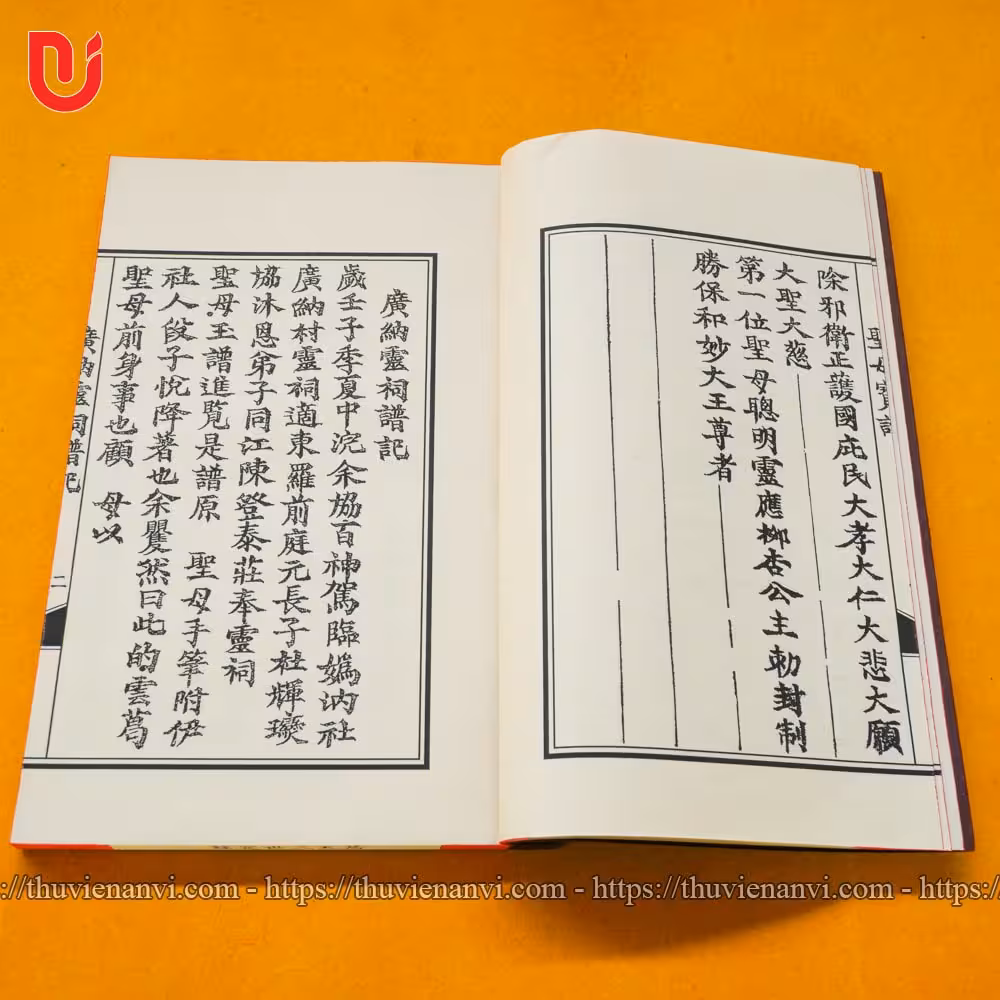 聖母寶
除邪衛正護國庇民大孝大仁大悲大願
大聖大慈
第一位聖母聰明靈應柳杏公主勅封制
勝保和妙大王尊者
廣納靈祠譜記
歲壬子季夏中浣余協百神駕臨嬀汭社
廣納村靈祠適東羅前庭元長子杜輝
協沐恩弟子同江陳登泰莊奉靈祠
聖母王譜進覧是譜原 聖母手筆附伊
社人段子悅降著也余矍然曰此的雲葛
聖母前身事也顧 母以
廣納靈祠譜記 二
https://thuvienanvi.com - https://thuvienanvi.com - https://thuvienanvi.com